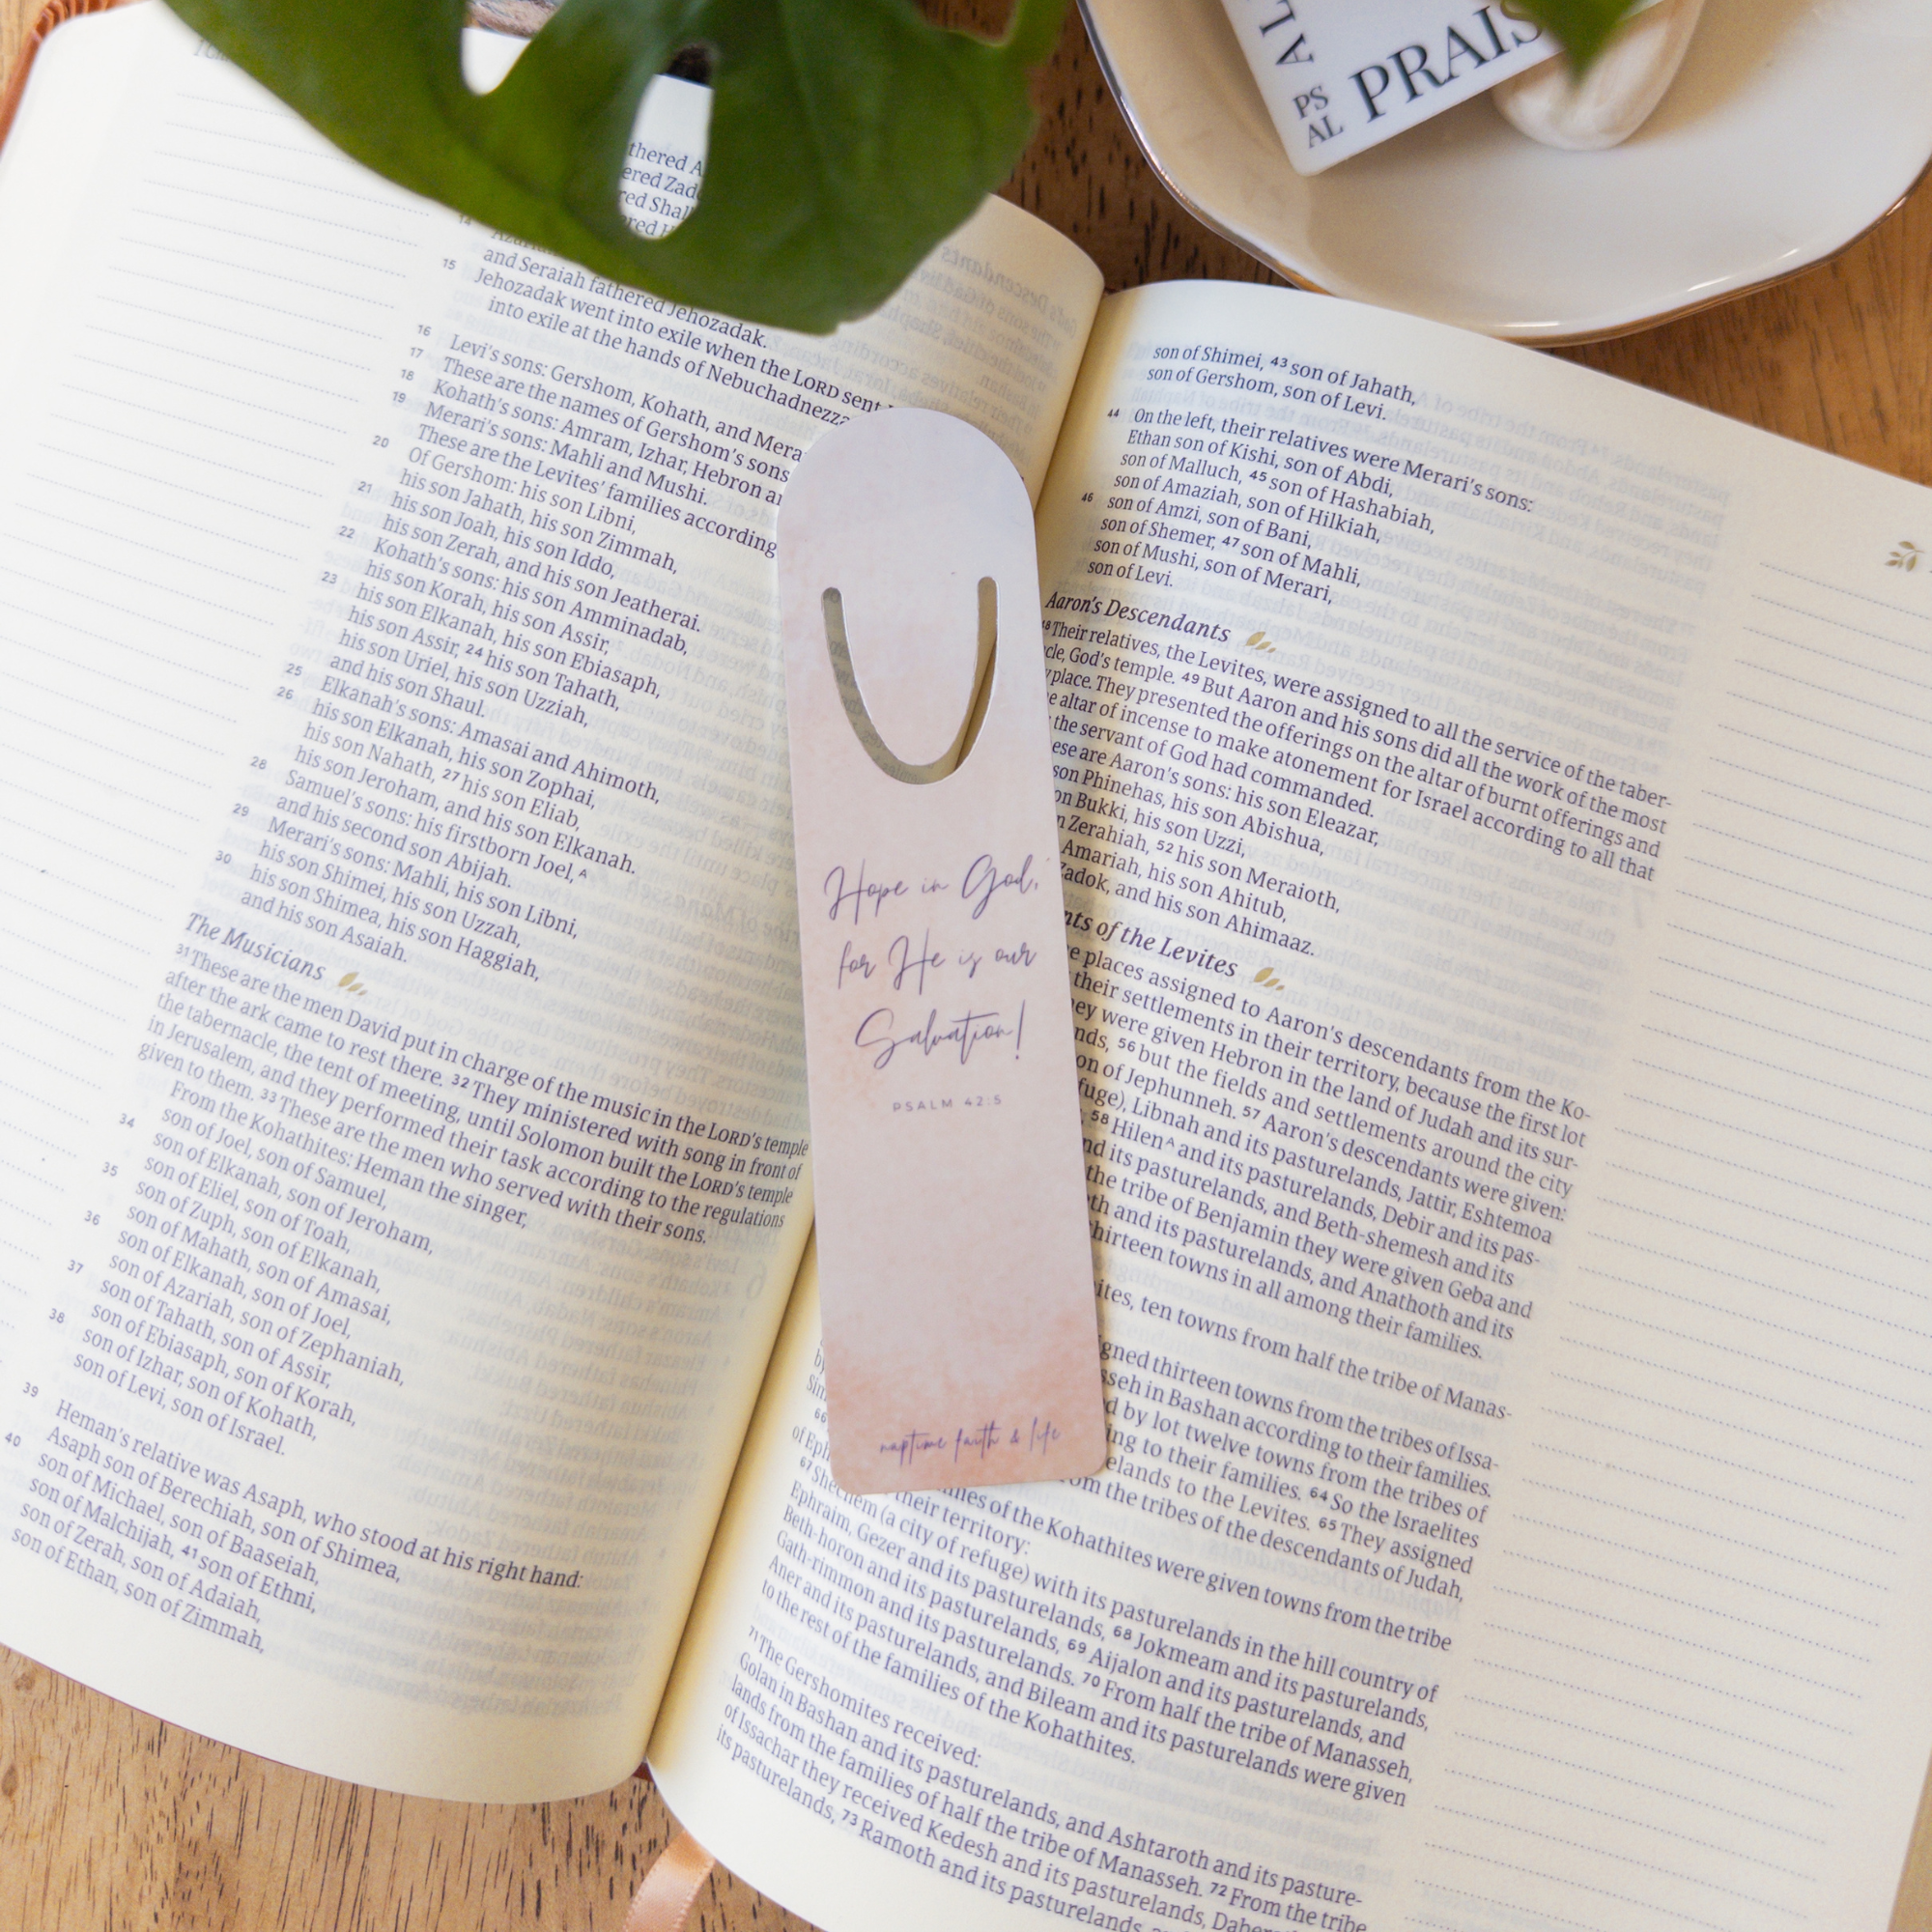 thered A
ered Zad
red Shal
ered H
14
and Seraiah fathered Jehozadak.
15 Jehozadak went into exile when the LORD sent
into exile at the hands of Nebuchadnezza
16 Levi's sons: Gershom, Kohath, and Merar
17 These are the names of Gershom's sons
18 Kohath's sons: Amram, Izhar, Hebron an
19 Merari's sons: Mahli and Mushi.
These are the Levites' families according
20 Of Gershom: his son Libni,
his son Jahath, his son Zimmah,
21 his son Joah, his son Iddo,
his son Zerah, and his son Jeatherai.
22 Kohath's sons: his son Amminadab,
his son Korah, his son Assir,
23 his son Elkanah, his son Ebiasaph,
his son Assir, 24 his son Tahath,
his son Uriel, his son Uzziah,
and his son Shaul.
25 Elkanah's sons: Amasai and Ahimoth,
26 his son Elkanah, his son Zophai,
his son Nahath, 27 his son Eliab,
his son Jeroham, and his son Elkanah.
28 Samuel's sons: his firstborn Joel,A
and his second son Abijah.
29 Merari's sons: Mahli, his son Libni,
his son Shimei, his son Uzzah,
30 his son Shimea, his son Haggiah,
and his son Asaiah.
The Musicians
31 These are the men David put in charge of the music in the LORD's temple
after the ark came to rest there. 32 They ministered with song in front of
the tabernacle, the tent of meeting, until Solomon built the LORD's temple
in Jerusalem, and they performed their task according to the regulations
given to them. 33 These are the men who served with their sons.
From the Kohathites: Heman the singer,
son of Joel, son of Samuel,
34 son of Elkanah, son of Jeroham,
son of Eliel, son of Toah,
35 son of Zuph, son of Elkanah,
son of Mahath, son of Amasai,
36 son of Elkanah, son of Joel,
son of Azariah, son of Zephaniah,
37 son of Tahath, son of Assir,
son of Ebiasaph, son of Korah,
38 son of Izhar, son of Kohath,
son of Levi, son of Israel.
39 Heman's relative was Asaph, who stood at his right hand:
Asaph son of Berechiah, son of Shimea,
40 son of Michael, son of Baaseiah,
son of Malchijah, 41 son of Ethni,
son of Zerah, son of Adaiah,
son of Ethan, son of Zimmah,
Hope in God,
for He is our
Salvation!
PSALM 42:5
naptime faith & life
son of Shimei, 43 son of Jahath,
son of Gershom, son of Levi.
44 On the left, their relatives were Merari's sons:
Ethan son of Kishi, son of Abdi,
son of Malluch, 45 son of Hashabiah,
son of Amaziah, son of Hilkiah,
46 son of Amzi, son of Bani,
son of Shemer, 47 son of Mahli,
son of Mushi, son of Merari,
son of Levi.
Aaron's Descendants
48 Their relatives, the Levites, were assigned to all the service of the taber-
cle, God's temple. 49 But Aaron and his sons did all the work of the most
place. They presented the offerings on the altar of burnt offerings and
e altar of incense to make atonement for Israel according to all that
the servant of God had commanded.
ese are Aaron's sons: his son Eleazar,
son Phinehas, his son Abishua,
on Bukki, his son Uzzi,
n Zerahiah, 52 his son Meraioth,
Amariah, his son Ahitub,
Zadok, and his son Ahimaaz.
nts of the Levites
e places assigned to Aaron's descendants from the Ko-
their settlements in their territory, because the first lot
ey were given Hebron in the land of Judah and its sur-
nds, 56 but the fields and settlements around the city
on of Jephunneh. 57 Aaron's descendants were given:
fuge), Libnah and its pasturelands, Jattir, Eshtemoa
58 HilenA and its pasturelands, Debir and its pas-
nd its pasturelands, and Beth-shemesh and its
the tribe of Benjamin they were given Geba and
th and its pasturelands, and Anathoth and its
hirteen towns in all among their families.
ites, ten towns from half the tribe of Manas-
gned thirteen towns from the tribes of Issa-
sseh in Bashan according to their families.
d by lot twelve towns from the tribes of
ing to their families. 64 So the Israelites
elands to the Levites. 65 They assigned
by
Sim
om the tribes of the descendants of Judah,
66
ilies of the Kohathites were given towns from the tribe
of Eph
their territory:
67 Shechem (a city of refuge) with its pasturelands in the hill country of
Ephraim, Gezer and its pasturelands, 68 Jokmeam and its pasturelands,
Beth-horon and its pasturelands, 69 Aijalon and its pasturelands, and
Gath-rimmon and its pasturelands. 70 From half the tribe of Manasseh,
Aner and its pasturelands, and Bileam and its pasturelands were given
to the rest of the families of the Kohathites.
71 The Gershomites received:
Golan in Bashan and its pasturelands, and Ashtaroth and its pasture-
lands from the families of half the tribe of Manasseh. 72 From the tribe
of Issachar they received Kedesh and its pasturelands, Daberath
its pasturelands, 73 Ramoth and its pasturelands,
PS
AL
PRAIS